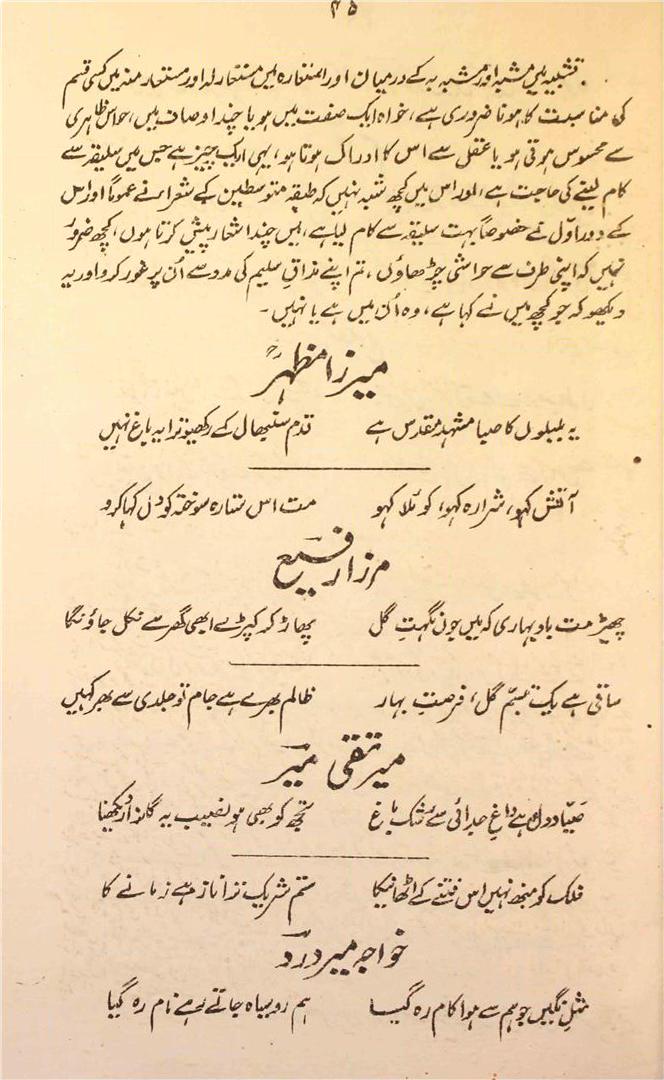 ۴۵
تشبیہ میں مشبہ اور مشبہ بہ کے درمیان اور استعارہ میں مستعار لہ اور مستعار منہ میں کسی قسم
کی مناسبت کا ہونا ضروری ہے، خواہ ایک صفت میں ہو یا چند اوصاف میں، حواس ظاہری
سے محسوس ہوتی ہو یا عقل سے اس کا ادراک ہوتا ہو، یہی ایک چیز ہے جس میں سلیقہ سے
کام لینے کی حاجت ہے، اور اس میں کچھ شبہ نہیں کہ طبقہ متوسطین کے شعراء نے عموماً اور اس
کے دور اوّل نے خصوصاً بہت سلیقہ سے کام لیا ہے، میں چند اشعار پیش کرتا ہوں، کچھ ضرور
نہیں کہ اپنی طرف سے حواشی چڑھاؤں، تم اپنے مذاقِ سلیم کی مدد سے اُن پر غور کرو اور یہ
دیکھو کہ جو کچھ میں نے کہا ہے، وہ اُن میں ہے یا نہیں۔
میرزا مظہرؒ
یہ بلبلوں کا صبا مشہد مقدس ہے قدم سنبھال کے رکھیو ترا یہ باغ نہیں
آتش کہو، شرارہ کہو، کوئلا کہو مت اس ستارہ سوختہ کو دل کہا کرو
مرزا رفیع
چھیڑ مت باد بہاری کہ میں جون نکہتِ گل پھاڑ کر کپڑے ابھی گھر سے نکل جاؤنگا
ساقی ہے یک تبسّم گل، فرصتِ بہار ظالم بھرے ہے جام تو جلدی سے بھر کہیں
میر تقی میر
صیّاد دل ہے داغِ جدائی سے رشک باغ تجھ کو بھی ہو نصیب یہ گلزار دیکھنا
فلک کو منھ نہیں اس فتنے کے اٹھانیکا ستم شریک ترا ناز ہے زمانے کا
خواجہ میر درد
مثلِ نگیں جو ہم سے ہوا کام رہ گیا ہم رو سیاہ جاتے رہے نام رہ گیا